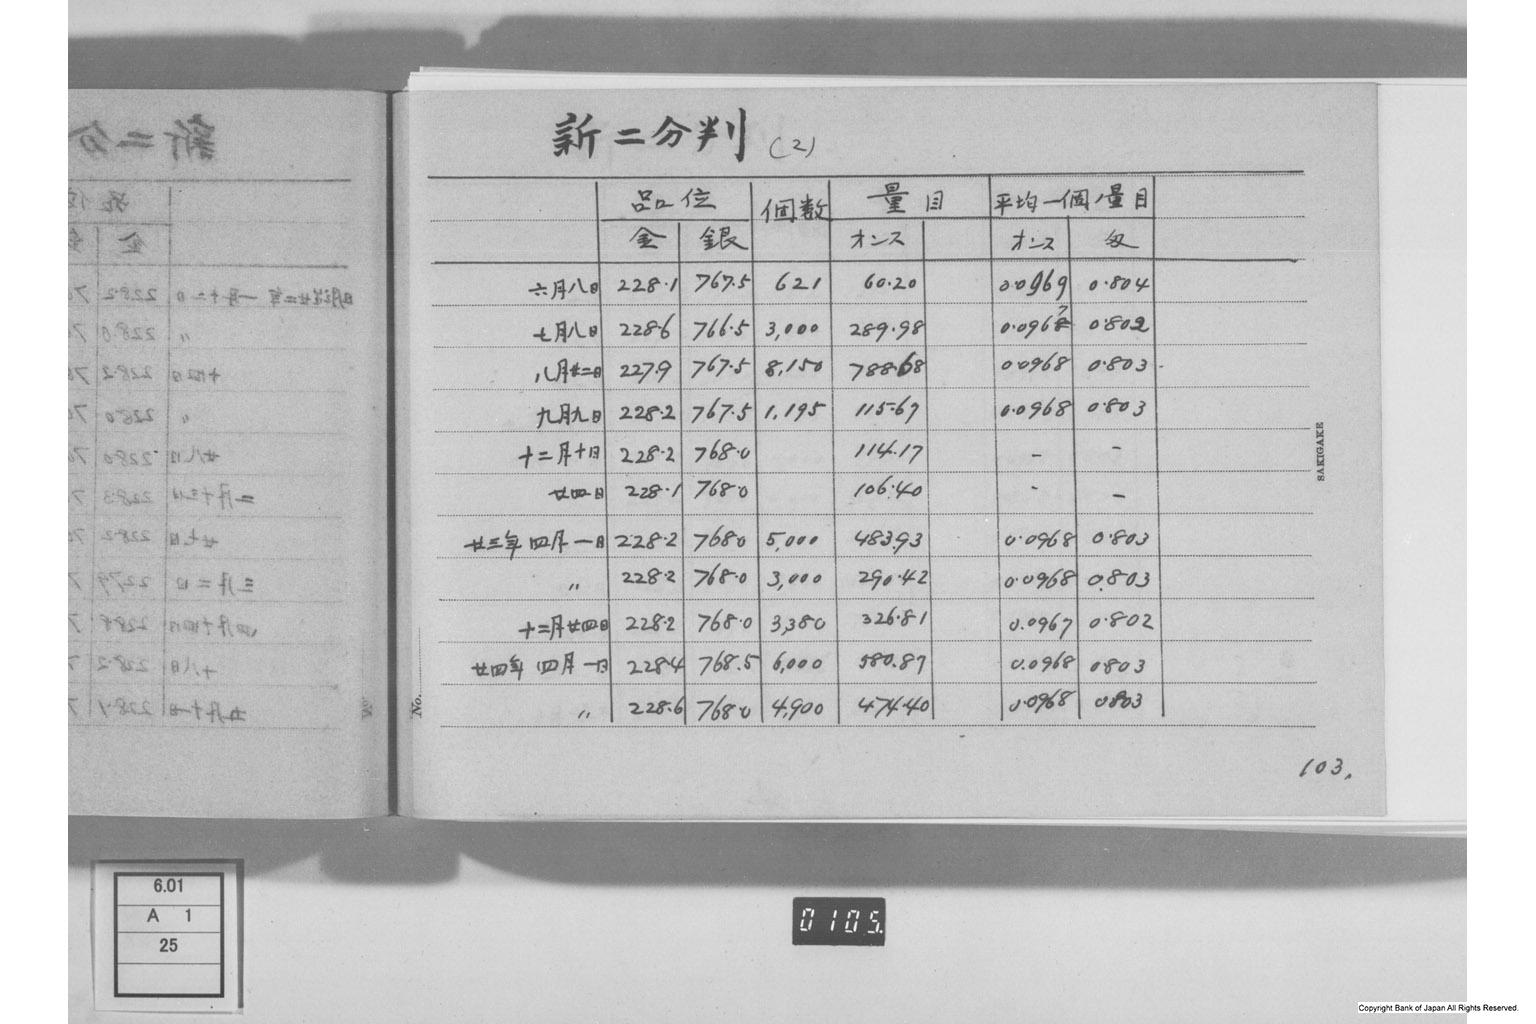 新二分判 (2)
品位 個数 量目 平均一個ノ量目
金 銀 オンス オンス 匁
六月八日 228.1 767.5 621 60.20 0.0969 0.804
七月八日 228.6 766.5 3,000 289.98 0.0967 0.802
八月廿二日 227.9 767.5 8,150 788.68 0.0968 0.803
九月九日 228.2 767.5 1,195 115.67 0.0968 0.803
十二月十日 228.2 768.0 114.17 – –
廿四日 228.1 768.0 106.40 – –
廿三年四月一日 228.2 768.0 5,000 483.93 0.0968 0.803
〃 228.2 768.0 3,000 290.42 0.0968 0.803
十二月廿四日 228.2 768.0 3,380 326.81 0.0967 0.802
廿四年四月一日 228.4 768.5 6,000 580.87 0.0968 0.803
〃 228.6 768.0 4,900 474.40 0.0968 0.803
No.
SAKIGAKE
103.
6.01
A 1
25
0105.
Copyright Bank of Japan All Rights Reserved.